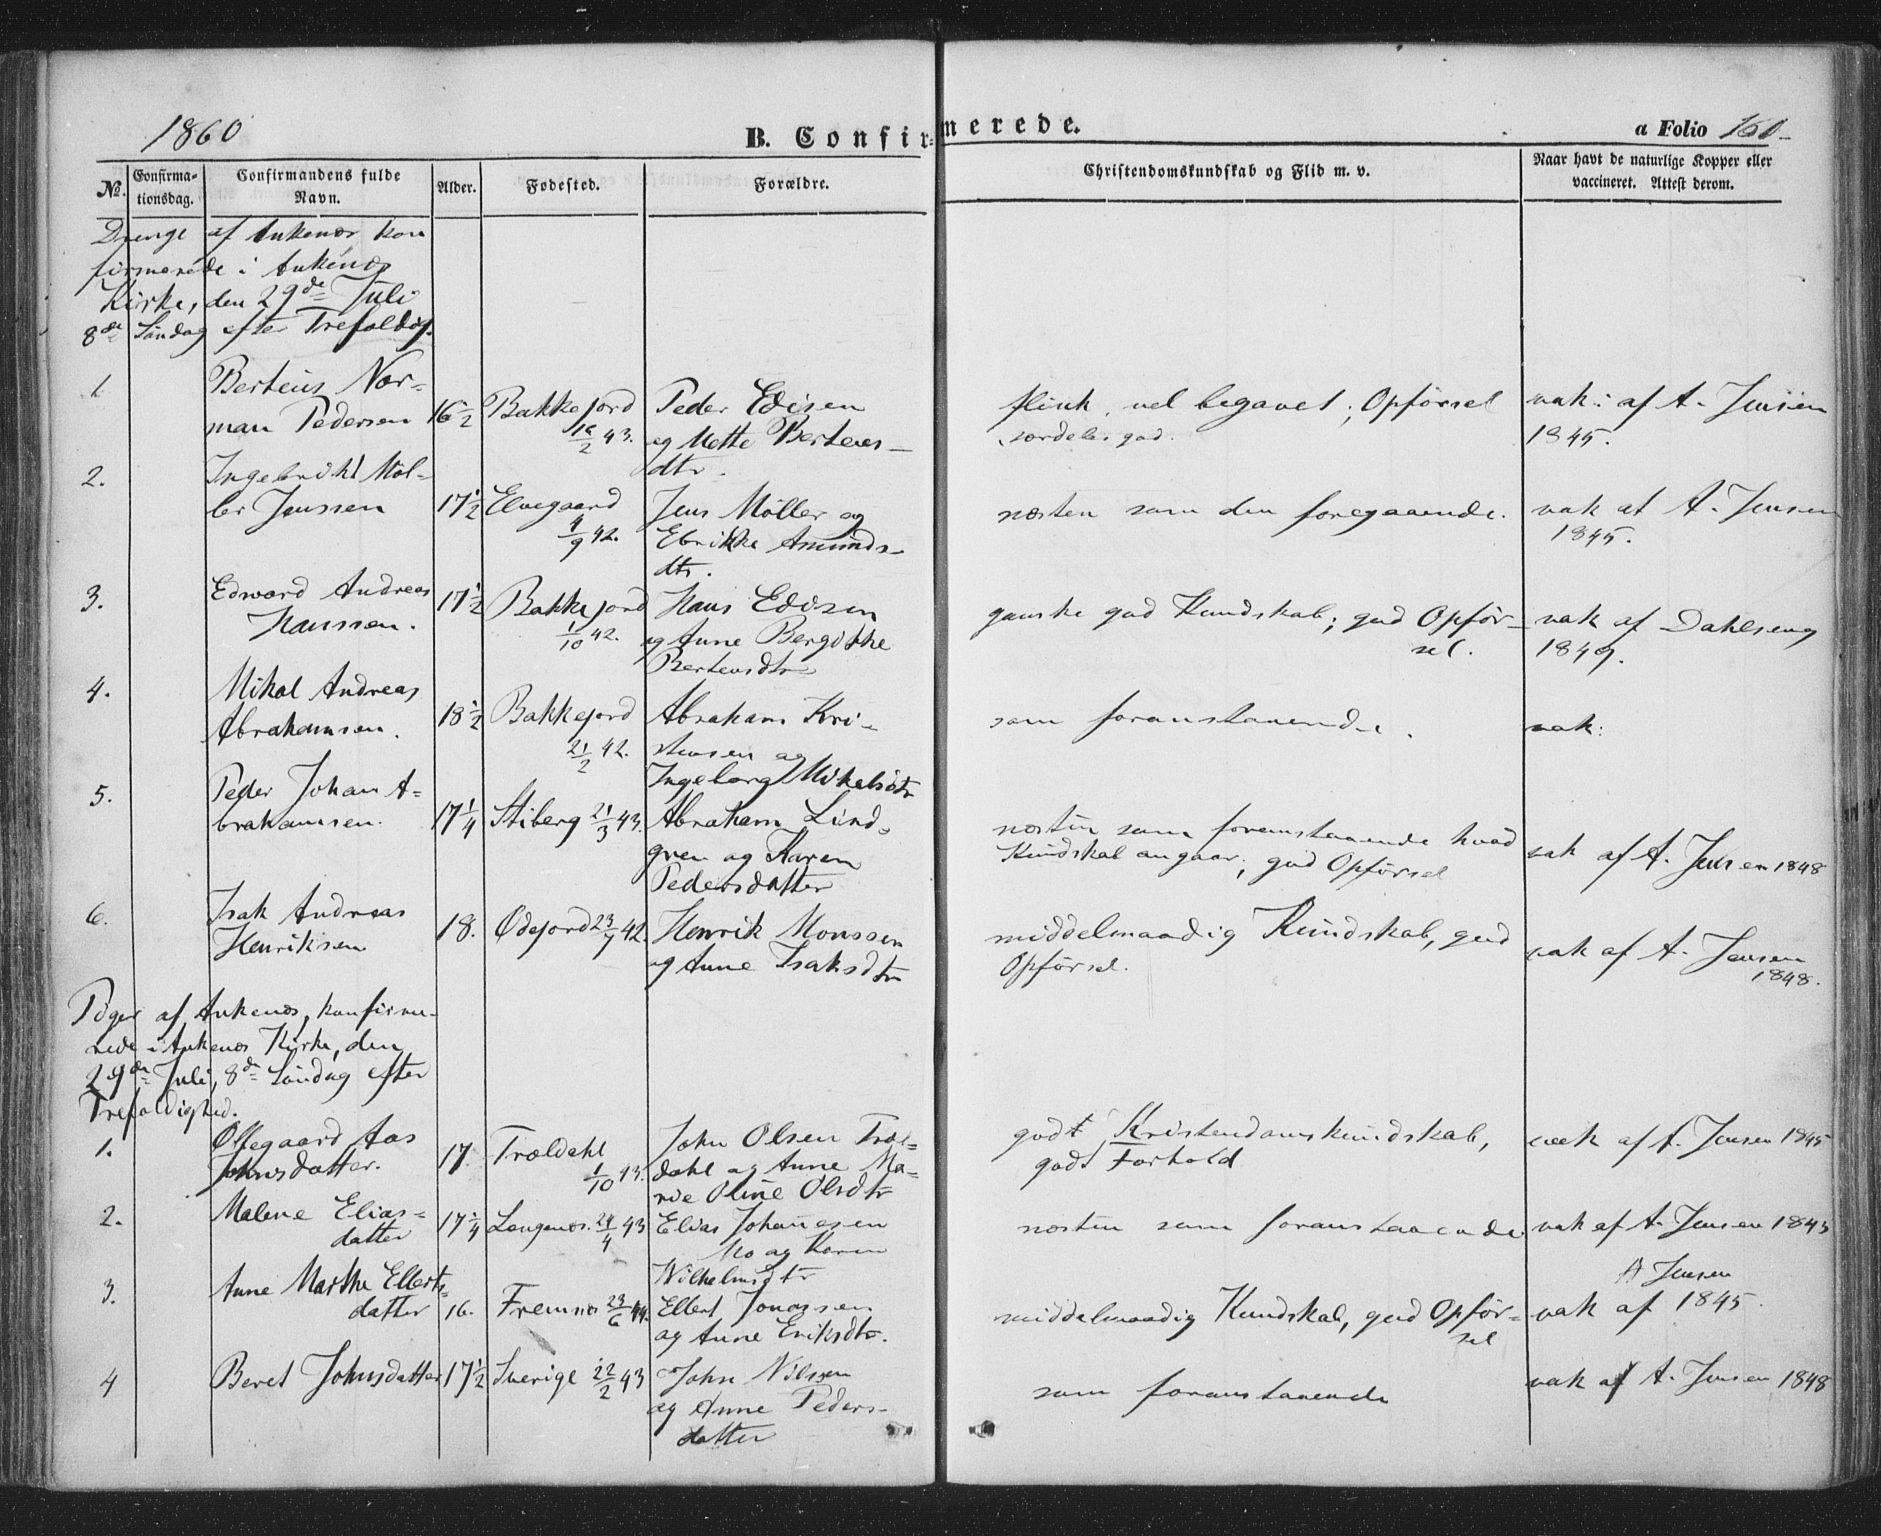 1860
B. Confirmerede.
a Folio 160
No.
Confirma-
tionsdag.
Confirmandens fulde
Navn.
Alder.
Fødested.
Forældre.
Christendomskundskab og Flid m. v.
Naar havt de naturlige Kopper eller
vaccineret. Attest derom.
Drenge af Ankenæs kon
firmerede i Ankenæs
Kirke, den 29de Juli
8de Søndag efter Trefoldig.
1. Berteus Nor-
man Pedersen 16 1/2 Bakkejord 12/2 43. Peder Edisen
og Mette Berteus-
dtr.
flink, vel begavet; Opførsel
særdeles god.
vak: af A. Jensen
1845.
2. Ingebrikt Møl-
ler Jenssen 17 1/2 Elvegaard 4/9 42. Jens Møller og
Ebrikke Amunds-
dtr.
næsten som den foregaaende.
vak af A. Jensen
1845.
3. Edvard Andreas
Hanssen. 17 1/2 Bakkejord 1/10 42. Hans Edisen
og Anne Bergitke
Berteusdtr
ganske god Kundskab; god Opfør-
sel.
vak af Dahlseng
1849.
4. Mikal Andreas
Abrahamsen. 18 1/2 Bakkejord 21/2 42. Abraham Kri-
stensen og
Ingeborg Mikelsdtr
som foranstaaende.
vak:
5. Peder Johan A-
brahamsen. 17 1/4 Stiberg 21/3 43. Abraham Lind-
gren og Karen
Pedersdatter
næsten som foranstaaende hvad
Kundskab angaar; god Opførsel
vak af A. Jensen 1848
6. Isak Andreas
Henriksen 18. Ødejord 23/7 42. Henrik Monssen
og Anne Isaksdtr
middelmaadig Kundskab, god
Opførsel.
vak af A. Jensen
1848.
Piger af Ankenæs, konfirme-
rede i Ankenæs Kirke, den
29de Juli, 8de Søndag efter
Trefoldighed.
1. Ollegaard Aas
Johnsdatter. 17 Trældahl 1/10 43. John Olsen Træl-
dahl og Anne Ma-
rie Oline Olsdtr
godt Kristendomskundskab,
godt Forhold
vak af A. Jensen 1845
2. Malene Elias-
datter 17 1/4 Lengenæs. 24/4 43 Elias Johannesen
Mo og Karen
Wilhelmsdtr
næsten som foranstaaende
vak af A. Jensen 1845
3. Anne Marthe Ellerts-
datter 16. Fremnæs 23/6 44. Ellert Jonassen
og Anne Eriksdtr.
middelmaadig Kundskab, god Opfør-
sel
A Jensen
vak af 1845.
4 Beret Johnsdatter 17 1/2 Sverige 22/2 43 John Nilssen
og Anne Peders-
datter
som foranstaaende
vak af A. Jensen 1848